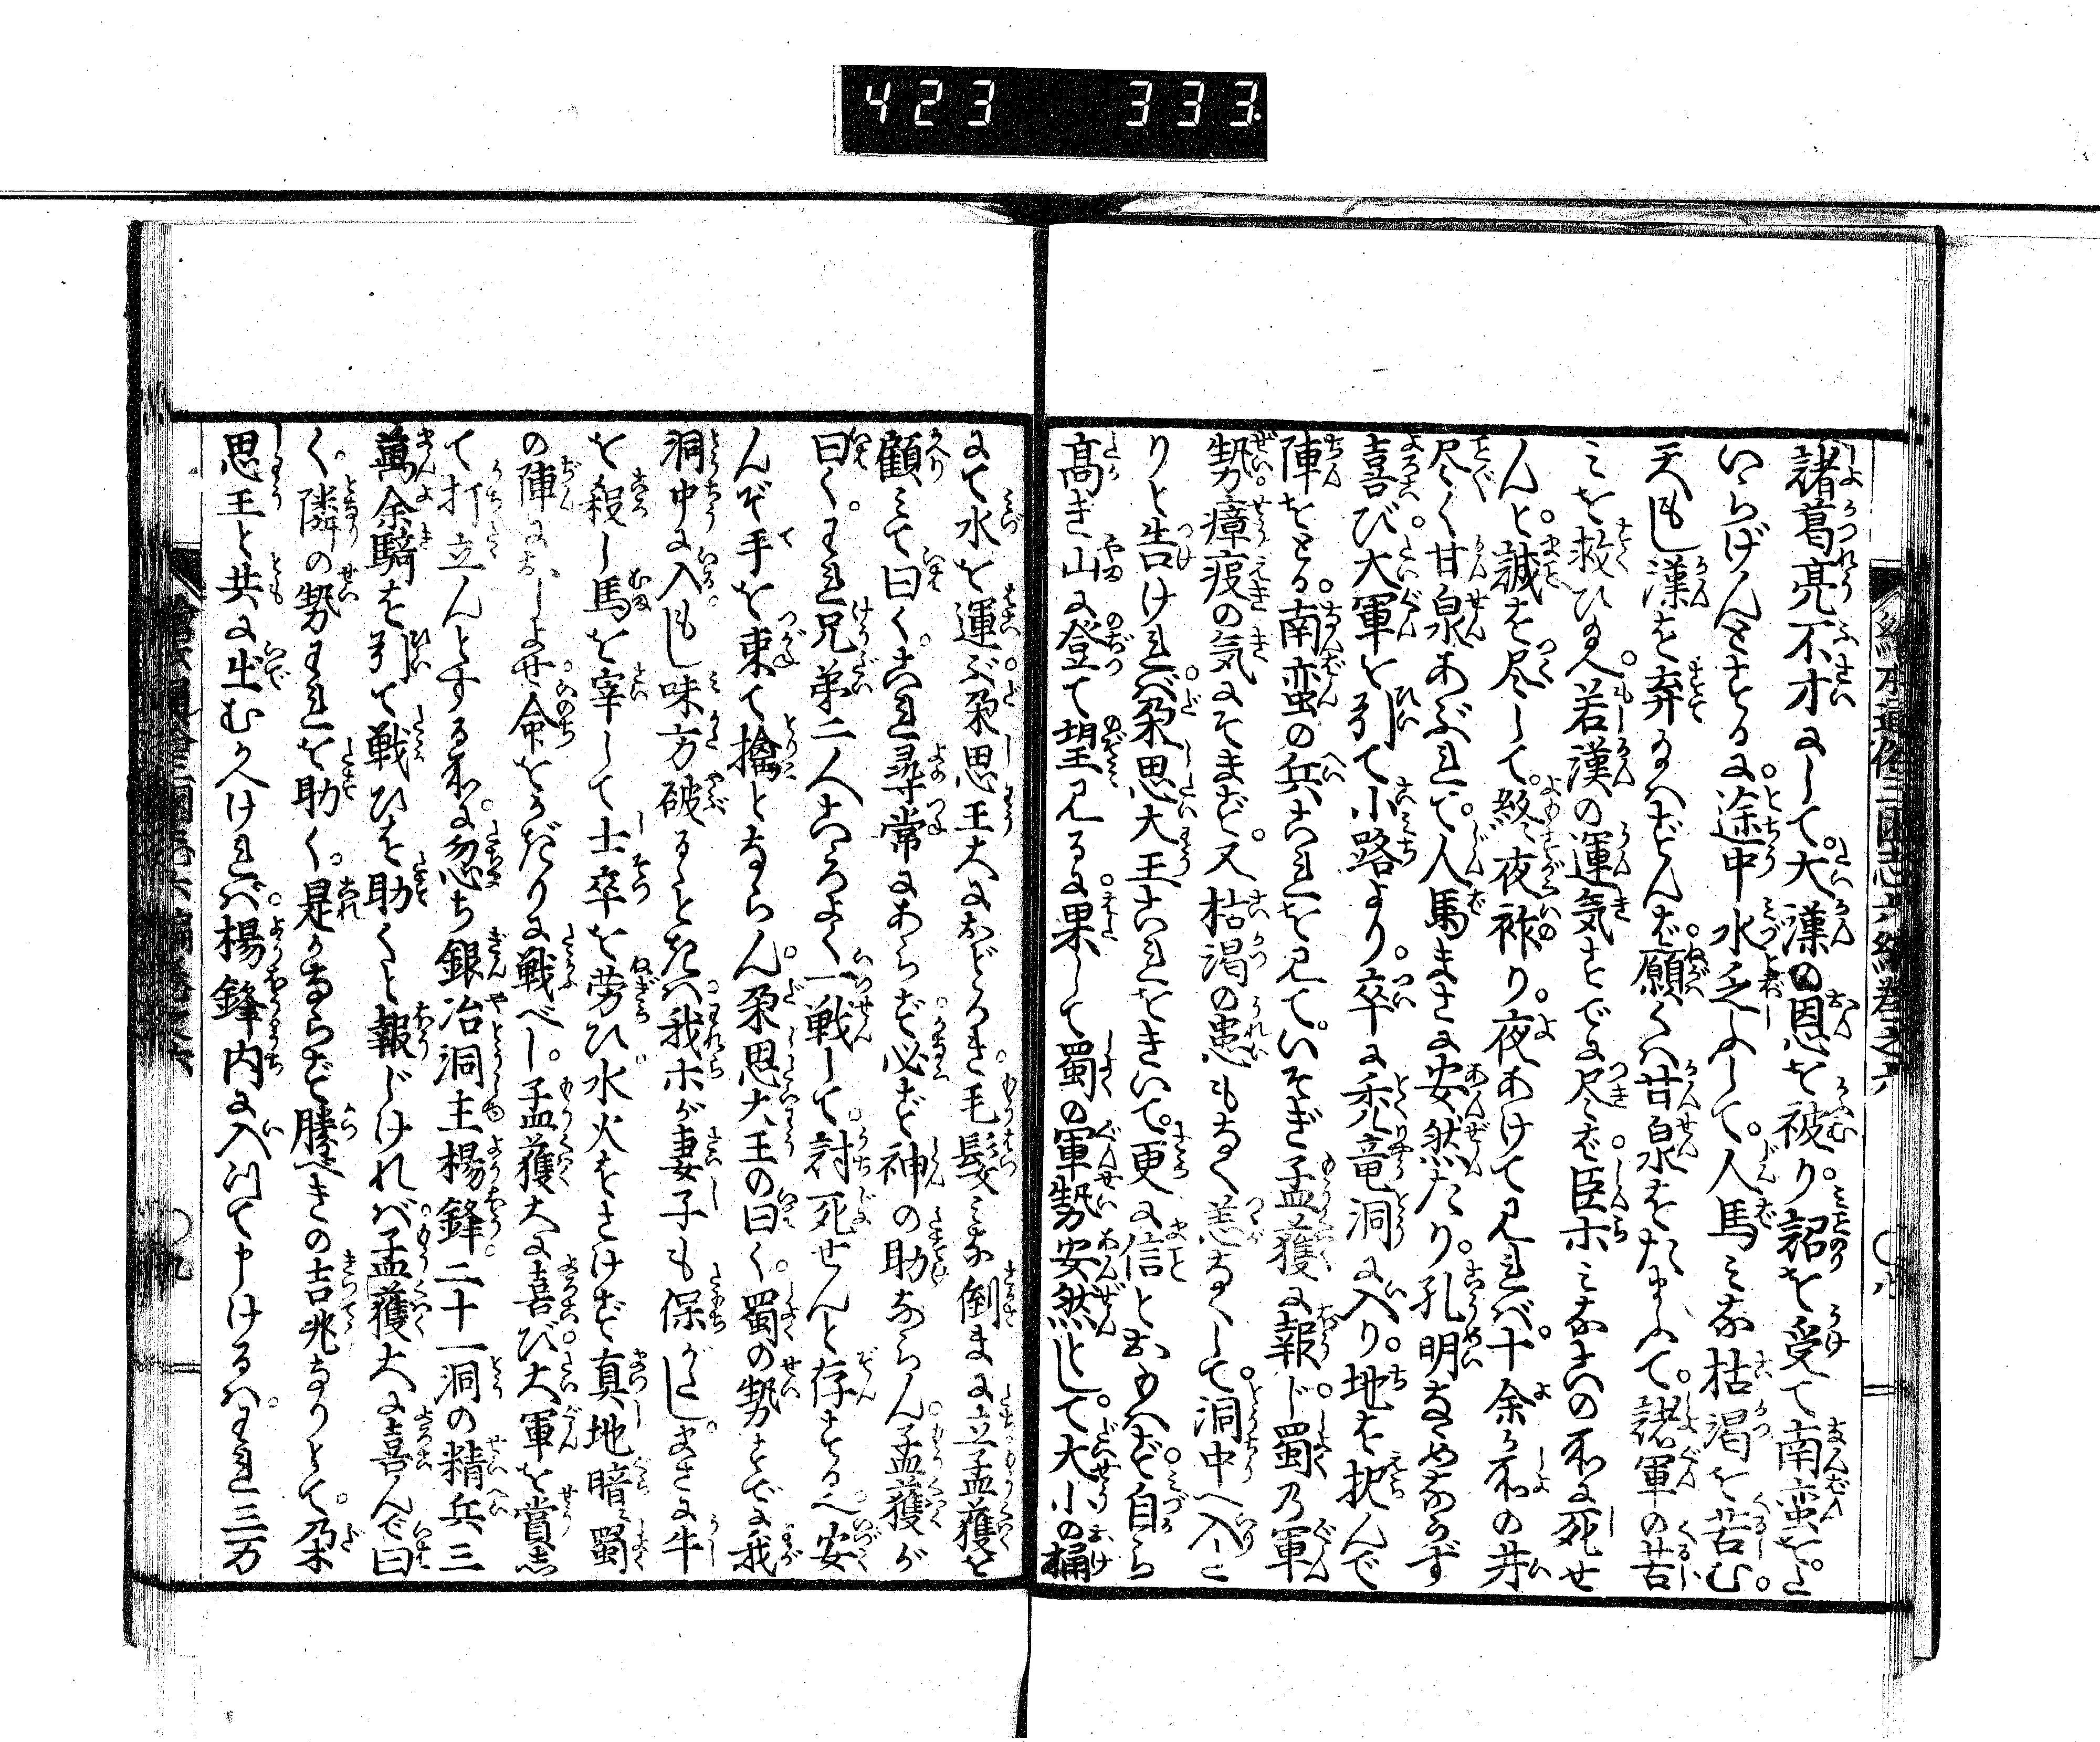 423 333
諸葛亮不才にして。大漢の恩を被り。詔を受て南蛮を。た
いらげんとするに。途中水乏ふして。人馬みな枯渇を苦む。
天もし漢を弃給はずんば。願くは甘泉をたまふて。諸軍の苦
みを救ひ給へ。若漢の運気すでに尽ば。臣ホみな此の所に死せ
ん。と誠を尽して。終夜祚り。夜あけて見れば。十余ヶ所の井
尽く甘泉あふれて。人馬まさに安然たり。孔明なゝめならず
喜び。大軍を引て小路より。卒に禿竜洞に入り。地を択んで
陣をとる。南蛮の兵これを見て。いそぎ孟獲に報じ。蜀乃軍
勢。瘴疫の気にそまず。又枯渇の患もなく恙なくして。洞中へ入こ
りと告ければ。朶思大王これをきいて。更に信とおもはず。自ら
高き山に登て望見るに。果して蜀の軍勢安然として。大小の桶
にて水を運ぶ。朶思王大におどろき。毛髪みな倒まに立孟獲を
顧みて曰く。これ尋常にあらず。必ず神の助ならん。孟獲が
曰く。われ兄弟二人こゝろよく一戦して。討死せんと存ずる。安
んぞ手を束て擒とならん。朶思大王の曰く。蜀の勢すでに我
洞中に入。もし味方破るときは。我ホが妻子も保がたし。まさに牛
を殺し馬を宰して士卒を労ひ。水火をさけず真地暗に蜀
の陣におしよせ。命をかぎりに戦べし。孟獲大に喜び。大軍を賞し
て打立んとする所に。忽ち銀冶洞主楊鋒。二十一洞の精兵三
萬余騎を引て戦ひを助くと報じければ。孟獲大に喜んで曰
く。隣の勢われを助く。是かならず勝べきの吉兆なりとて。朶
思王と共に出むかへければ。楊鋒内に入て申けるは。われ三万